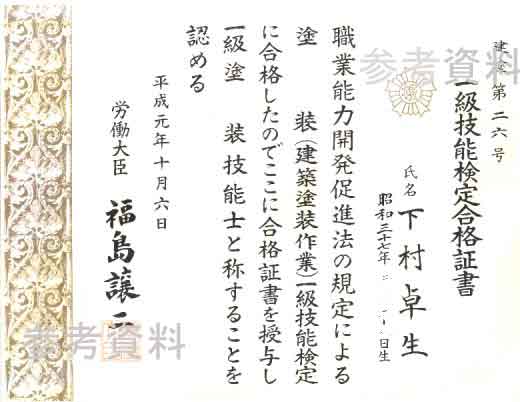 第二六号
一級技能検定合格証書
氏名 下村卓生
昭和三十七年 日生
職業能力開発促進法の規定による
塗 装(建築塗装作業)一級技能検定
に合格したのでここに合格証書を授与し
一級塗 装技能士と称することを
認める
平成元年十月六日
労働大臣 福島譲二
参考資料
参考資料